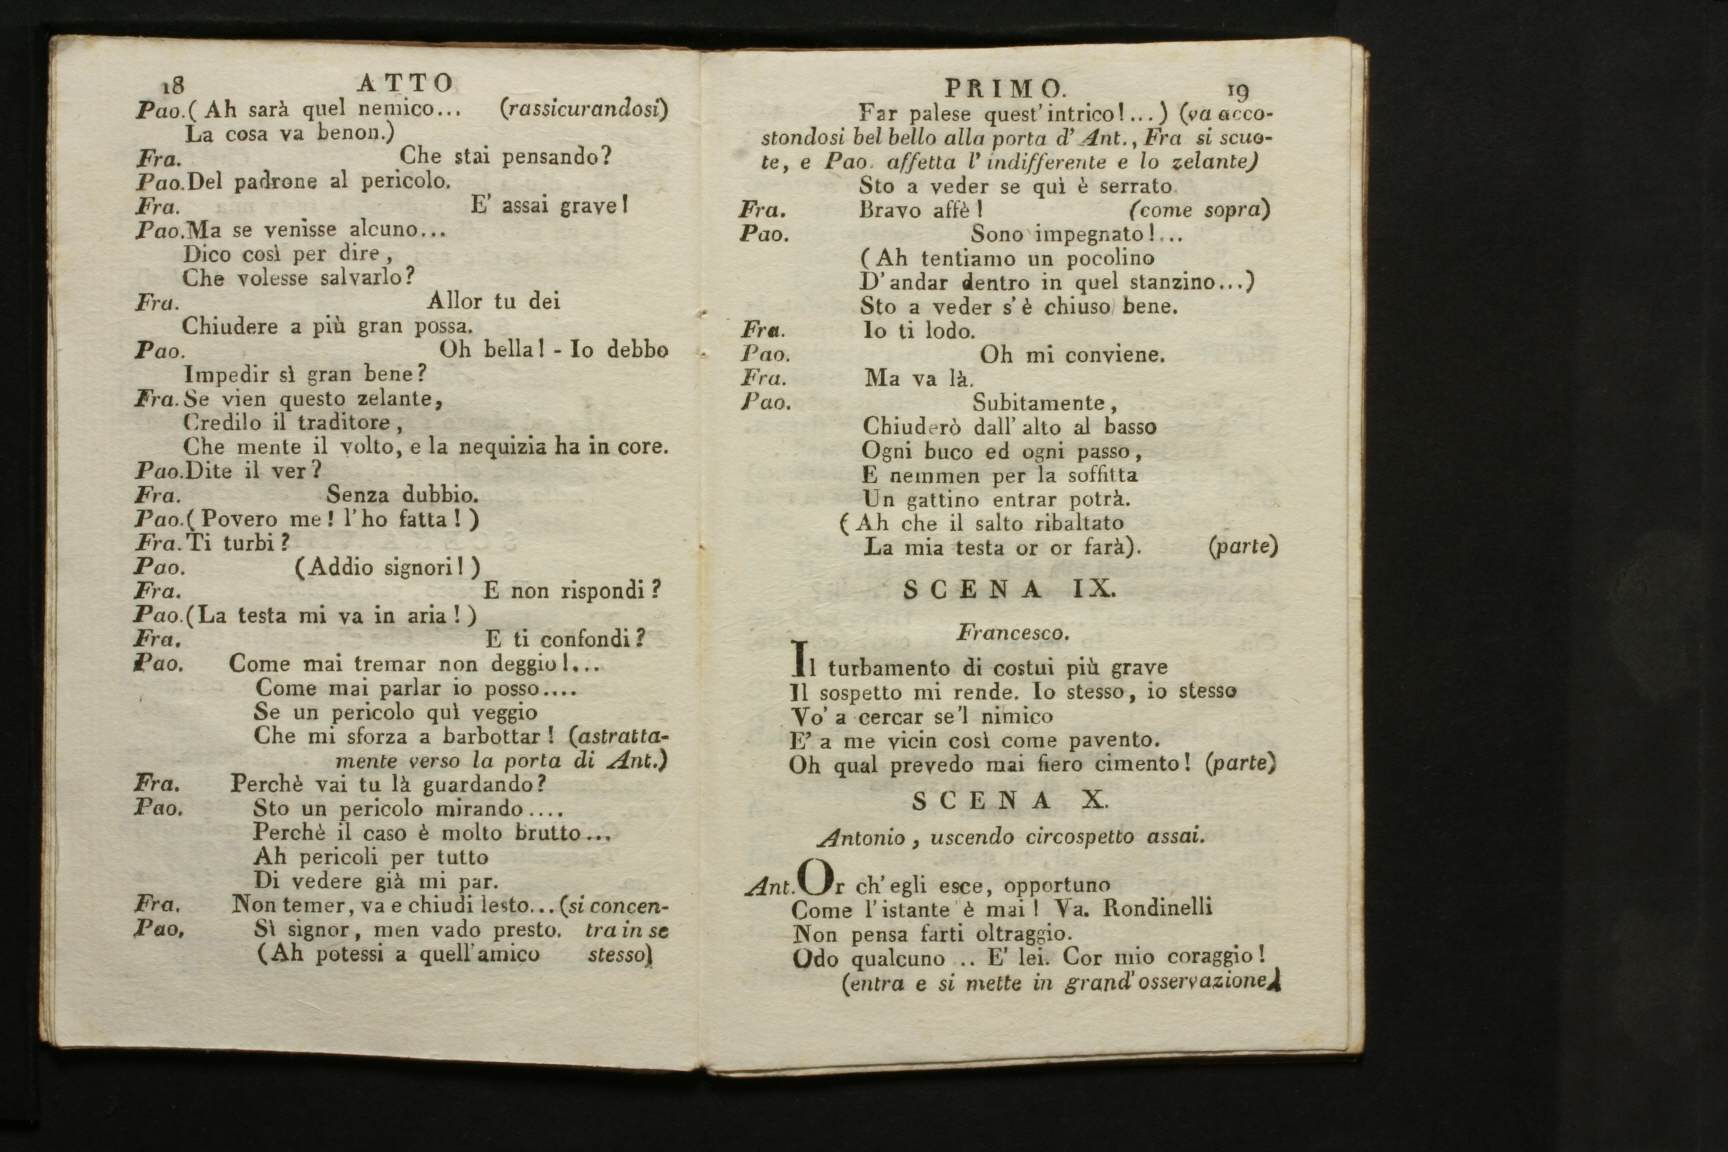 18 ATTO
Pao. ( Ah sarà quel nemico... (rassicurandosi)
La cosa va benon.)
Fra. Che stai pensando?
Pao. Del padrone al pericolo.
Fra. E' assai grave!
Pao. Ma se venisse alcuno...
Dico così per dire,
Che volesse salvarlo?
Fra. Allor tu dei
Chiudere a più gran possa.
Pao. Oh bella! - Io debbo
Impedir sì gran bene?
Fra. Se vien questo zelante,
Credilo il traditore,
Che mente il volto, e la nequizia ha in core.
Pao. Dite il ver?
Fra. Senza dubbio.
Pao. ( Povero me! l'ho fatta! )
Fra. Ti turbi?
Pao. (Addio signori! )
Fra. E non rispondi?
Pao. (La testa mi va in aria! )
Fra. E ti confondi?
Pao. Come mai tremar non deggio!...
Come mai parlar io posso....
Se un pericolo quì veggio
Che mi sforza a barbottar! (astratta-
mente verso la porta di Ant.)
Fra. Perchè vai tu là guardando?
Pao. Sto un pericolo mirando....
Perchè il caso è molto brutto...
Ah pericoli per tutto
Di vedere già mi par.
Fra. Non temer, va e chiudi lesto... (si concen-
Pao. Sì signor, men vado presto. tra in se
(Ah potessi a quell'amico stesso)
PRIMO. 19
Far palese quest'intrico!...) (va acco-
stondosi bel bello alla porta d'Ant., Fra si scuo-
te, e Pao. affetta l'indifferente e lo zelante)
Sto a veder se quì è serrato
Fra. Bravo affè! (come sopra)
Pao. Sono impegnato!...
( Ah tentiamo un pocolino
D'andar dentro in quel stanzino...)
Sto a veder s'è chiuso bene.
Fra. Io ti lodo.
Pao. Oh mi conviene.
Fra. Ma va là.
Pao. Subitamente,
Chiuderò dall'alto al basso
Ogni buco ed ogni passo,
E nemmen per la soffitta
Un gattino entrar potrà.
( Ah che il salto ribaltato
La mia testa or or farà). (parte)
SCENA IX.
Francesco.
Il turbamento di costui più grave
Il sospetto mi rende. Io stesso, io stesso
Vo' a cercar se'l nimico
E' a me vicin così come pavento.
Oh qual prevedo mai fiero cimento! (parte)
SCENA X.
Antonio, uscendo circospetto assai.
Ant. Or ch'egli esce, opportuno
Come l'istante è mai! Va. Rondinelli
Non pensa farti oltraggio.
Odo qualcuno .. E' lei. Cor mio coraggio!
(entra e si mette in grand'osservazione)